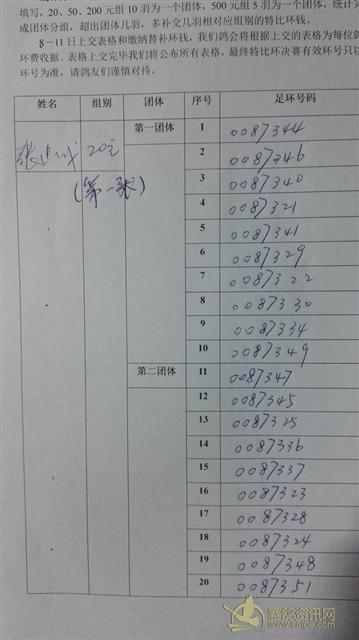 填写，20、50、200 元组 10 羽为一个团体，500 元组 5 羽为一个团体，统计
成团体分组，超出团体几羽，多补交几羽相对应组别的特比环钱。
8－11 日上交表格和缴纳替补环钱，我们鸽会将根据上交的表格为每位鸽
环费收据。表格上交完毕我们将公布所有表格，最终特比环决赛有效环号只以
环号为准，请鸽友们谨慎对待。
姓名 组别 团体 序号 足环号码
第一团体 1 0087344
20元 2 0087346
(第一张) 3 0087340
4 0087321
5 0087341
6 0087329
7 0087322
8 0087330
9 0087334
10 0087349
第二团体 11 0087347
12 0087345
13 0087325
14 0087336
15 0087337
16 0087323
17 0087328
18 0087324
19 0087348
20 0087351
赛鸽资讯网
www.saige.com